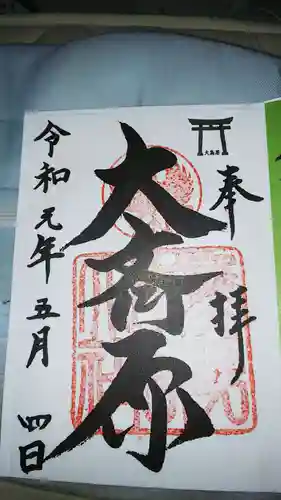 大斎原
奉拝
大斎原
令和元年五月四日